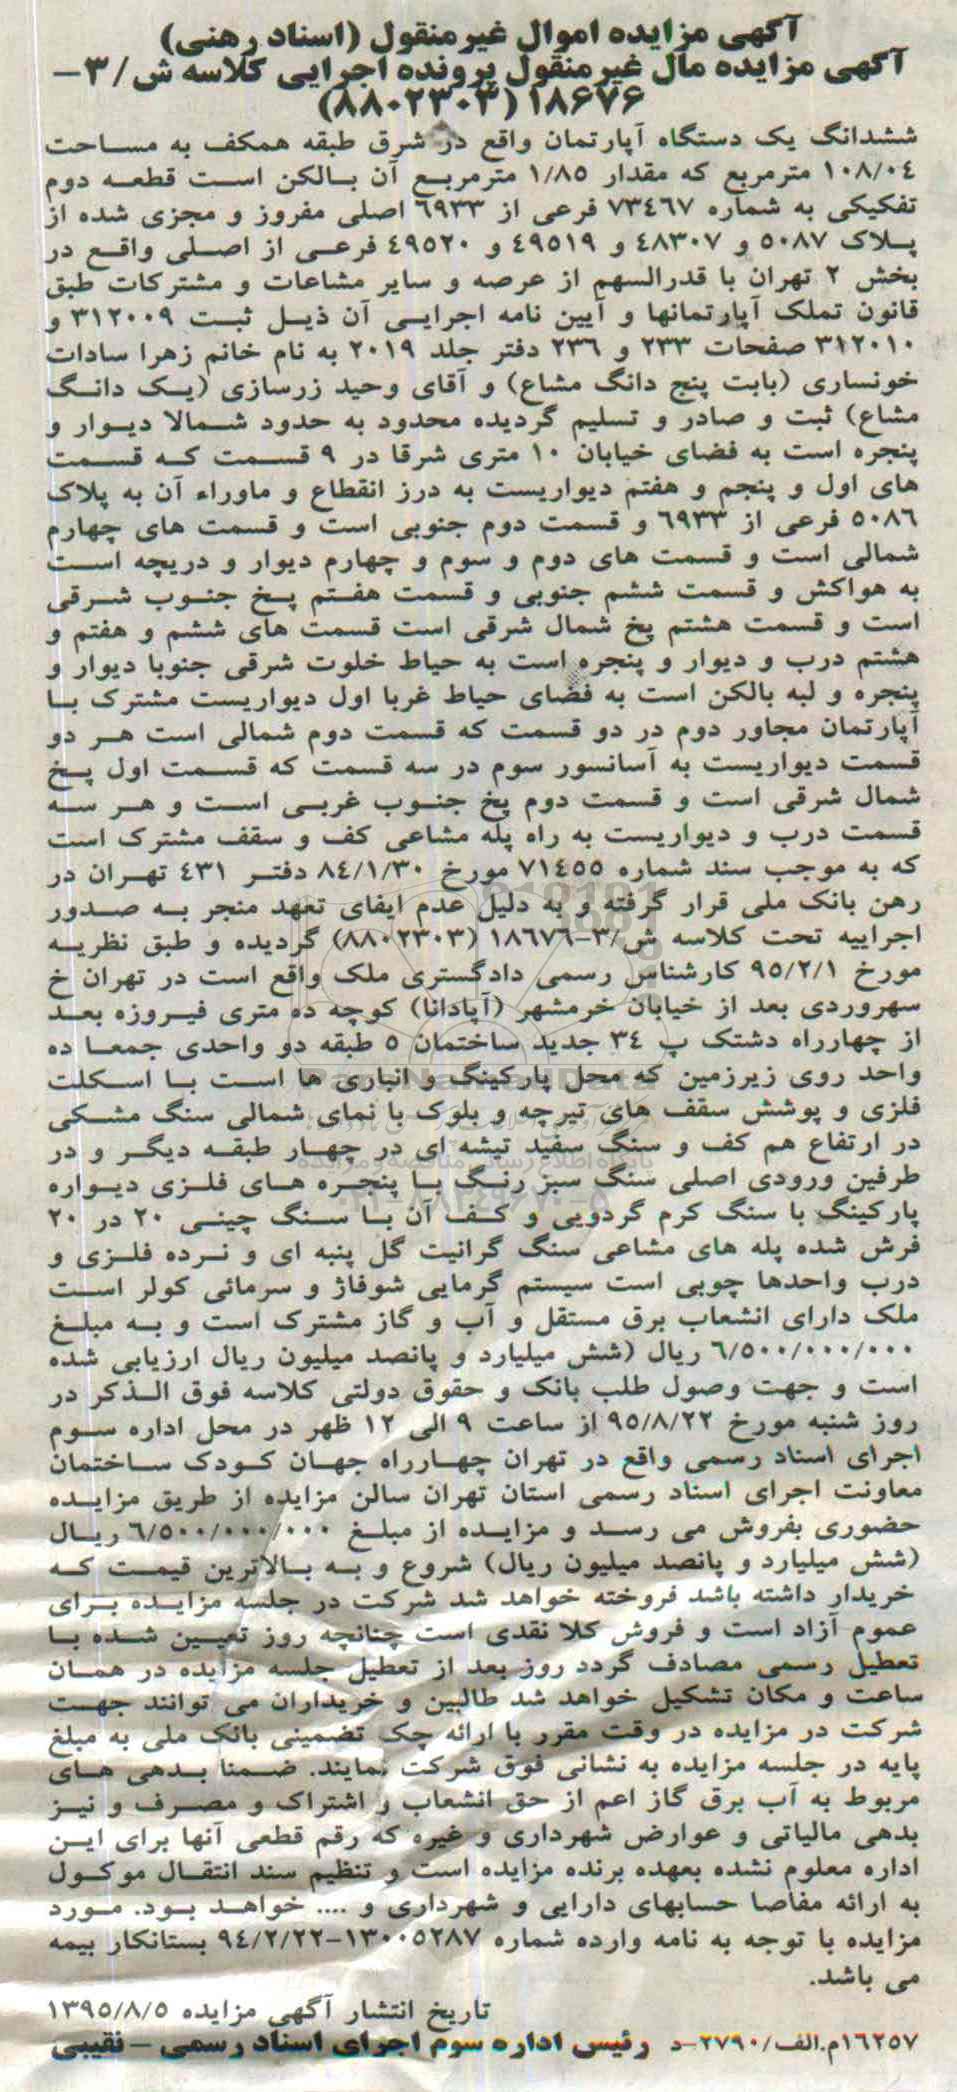 آگهی مزایده اموال غیرمنقول (اسناد رهنی)
آگهی مزایده مال غیرمنقول پرونده اجرایی کلاسه ش/۳-
۱۸۶۷۶ (۸۸۰۲۳۰۳)
ششدانگ یک دستگاه آپارتمان واقع در شرق طبقه همکف به مساحت
۱۰۸/۰۴ مترمربع که مقدار ۱/۸۵ مترمربع آن بالکن است قطعه دوم
تفکیکی به شماره ۷۳۴۶۷ فرعی از ۶۹۳۳ اصلی مفروز و مجزی شده از
پلاک ۵۰۸۷ و ۴۸۳۰۷ و ۴۹۵۱۹ و ۴۹۵۲۰ فرعی از اصلی واقع در
بخش ۲ تهران با قدرالسهم از عرصه و سایر مشاعات و مشترکات طبق
قانون تملک آپارتمانها و آیین نامه اجرایی آن ذیل ثبت ۳۱۲۰۰۹ و
۳۱۲۰۱۰ صفحات ۲۳۳ و ۲۳۶ دفتر جلد ۲۰۱۹ به نام خانم زهرا سادات
خونساری (بابت پنج دانگ مشاع) و آقای وحید زرسازی (یک دانگ
مشاع) ثبت و صادر و تسلیم گردیده محدود به حدود شمالا دیوار و
پنجره است به فضای خیابان ۱۰ متری شرقا در ۹ قسمت که قسمت
های اول و پنجم و هفتم دیواریست به درز انقطاع و ماوراء آن به پلاک
۵۰۸۶ فرعی از ۶۹۳۳ و قسمت دوم جنوبی است و قسمت های چهارم
شمالی است و قسمت های دوم و سوم و چهارم دیوار و دریچه است
به هواکش و قسمت ششم جنوبی و قسمت هفتم پخ جنوب شرقی
است و قسمت هشتم پخ شمال شرقی است قسمت های ششم و هفتم و
هشتم درب و دیوار و پنجره است به حیاط خلوت شرقی جنوبا دیوار و
پنجره و لبه بالکن است به فضای حیاط غربا اول دیواریست مشترک با
آپارتمان مجاور دوم در دو قسمت که قسمت دوم شمالی است هر دو
قسمت دیواریست به آسانسور سوم در سه قسمت که قسمت اول پخ
شمال شرقی است و قسمت دوم پخ جنوب غربی است و هر سه
قسمت درب و دیواریست به راه پله مشاعی کف و سقف مشترک است
که به موجب سند شماره ۷۱۴۵۵ مورخ ۸۴/۱/۳۰ دفتر ۴۳۱ تهران در
رهن بانک ملی قرار گرفته و به دلیل عدم ایفای تعهد منجر به صدور
اجراییه تحت کلاسه ش/۳-۱۸۶۷۶ (۸۸۰۲۳۰۳) گردیده و طبق نظریه
مورخ ۹۵/۲/۱ کارشناس رسمی دادگستری ملک واقع است در تهران خ
سهروردی بعد از خیابان خرمشهر (آپادانا) کوچه ده متری فیروزه بعد
از چهارراه دشتک پ ۳۴ جدید ساختمان ۵ طبقه دو واحدی جمعا ده
واحد روی زیرزمین که محل پارکینگ و انباری ها است با اسکلت
فلزی و پوشش سقف های تیرچه و بلوک با نمای شمالی سنگ مشکی
در ارتفاع هم کف و سنگ سفید تیشه ای در چهار طبقه دیگر و در
طرفین ورودی اصلی سنگ سبز رنگ با پنجره های فلزی دیواره
پارکینگ با سنگ کرم گردویی و کف آن با سنگ چینی ۲۰ در ۲۰
فرش شده پله های مشاعی سنگ گرانیت گل پنبه ای و نرده فلزی و
درب واحدها چوبی است سیستم گرمایی شوفاژ و سرمائی کولر است
ملک دارای انشعاب برق مستقل و آب و گاز مشترک است و به مبلغ
۶/۵۰۰/۰۰۰/۰۰۰ ریال (شش میلیارد و پانصد میلیون ریال ارزیابی شده
است و جهت وصول طلب بانک و حقوق دولتی کلاسه فوق الذکر در
روز شنبه مورخ ۹۵/۸/۲۲ از ساعت ۹ الی ۱۲ ظهر در محل اداره سوم
اجرای اسناد رسمی واقع در تهران چهارراه جهان کودک ساختمان
معاونت اجرای اسناد رسمی استان تهران سالن مزایده از طریق مزایده
حضوری بفروش می رسد و مزایده از مبلغ ۶/۵۰۰/۰۰۰/۰۰۰ ریال
(شش میلیارد و پانصد میلیون ریال) شروع و به بالاترین قیمت که
خریدار داشته باشد فروخته خواهد شد شرکت در جلسه مزایده برای
عموم آزاد است و فروش کلا نقدی است چنانچه روز تعیین شده با
تعطیل رسمی مصادف گردد روز بعد از تعطیل جلسه مزایده در همان
ساعت و مکان تشکیل خواهد شد طالبین و خریداران می توانند جهت
شرکت در مزایده در وقت مقرر با ارائه چک تضمینی بانک ملی به مبلغ
پایه در جلسه مزایده به نشانی فوق شرکت نمایند. ضمنا بدهی های
مربوط به آب برق گاز اعم از حق انشعاب و اشتراک و مصرف و نیز
بدهی مالیاتی و عوارض شهرداری و غیره که رقم قطعی آنها برای این
اداره معلوم نشده بعهده برنده مزایده است و تنظیم سند انتقال موکول
به ارائه مفاصا حسابهای دارایی و شهرداری و .... خواهد بود. مورد
مزایده با توجه به نامه وارده شماره ۱۳۰۰۵۲۸۷-۹۴/۲/۲۲ بستانکار بیمه
می باشد.
تاریخ انتشار آگهی مزایده ۱۳۹۵/۸/۵
۱۶۲۵۷م.الف/۲۷۹۰-د رئیس اداره سوم اجرای اسناد رسمی - نقیبی